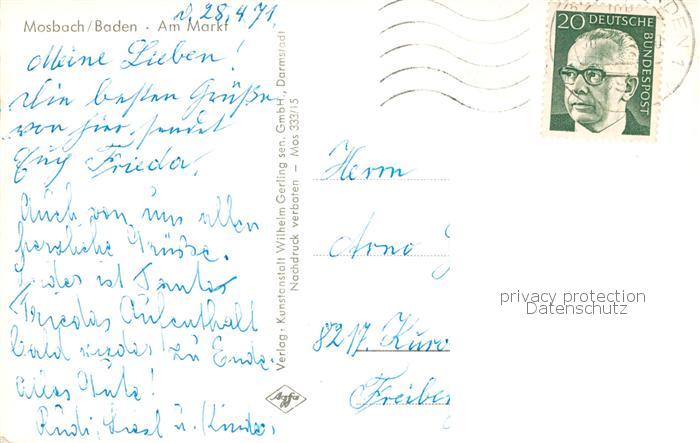 Mosbach/Baden · Am Markt
d. 28.4.71
Meine Lieben!
Die besten Grüße
von hier, sendet
Euch Frieda.
Auch von uns allen
herzliche Grüsse.
Leider ist Tantes
Friedas Aufenthalt
bald wieder zu Ende.
Alles Gute!
Rudi, Liesl u. Kinder.
Verlag · Kunstanstalt Wilhelm Gerling sen. GmbH., Darmstadt
Nachdruck verboten – Mos 333/15
Agfa
20 DEUTSCHE
BUNDESPOST
Herrn
Arno
8217 Kuro
Freiber
privacy protection
Datenschutz